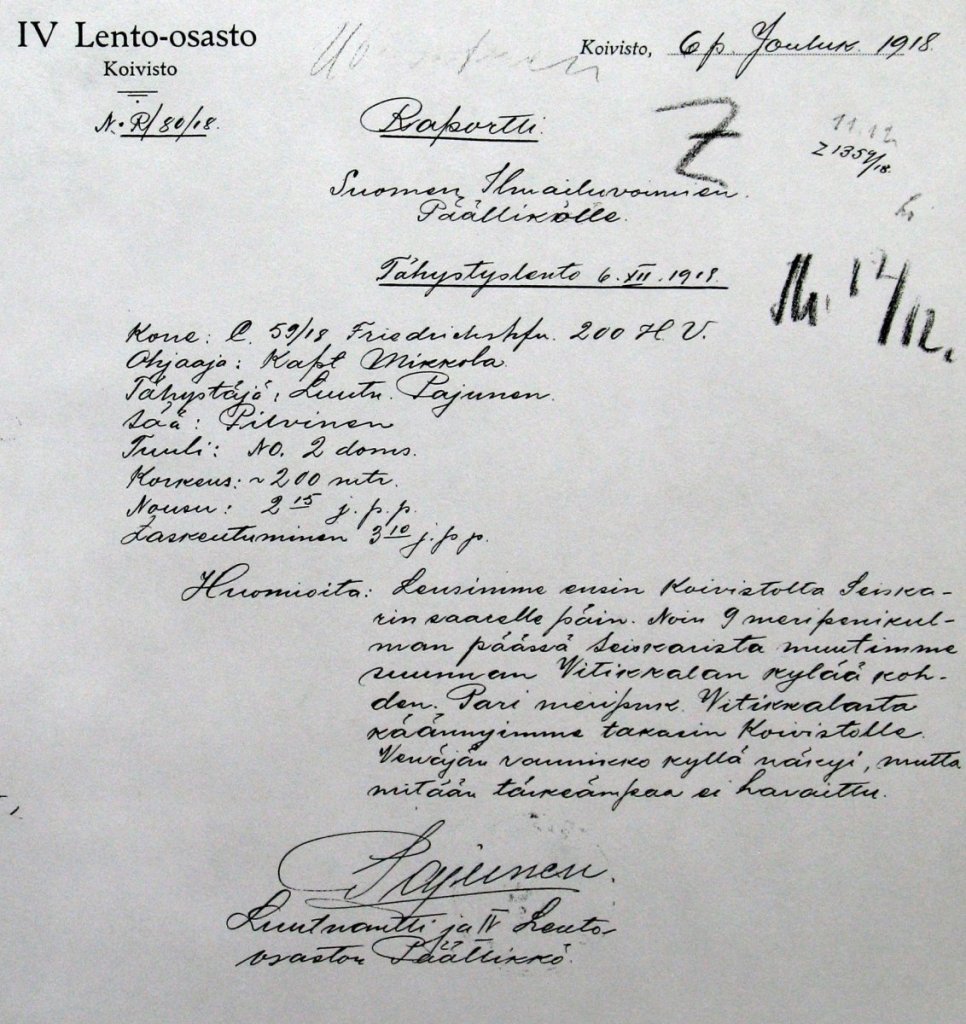 IV Lento-osasto
Koivisto
Koivisto, 6 p. Jouluk. 1918
N. R/80/18.
Raportti.
Z
11.12
Z 1359/18
Suomen Ilmailuvoimien
Päällikölle.
Tähystyslento 6.XII.1918.
14/12.
Kone: C. 59/18 Friedrichshfn. 200 H.V.
Ohjaaja: Kapt Mikkola.
Tähystäjä: Luutn. Pajunen.
Sää: Pilvinen
Tuuli: NO. 2 doms.
Korkeus: ~ 200 mtr.
Nousu: 2 15 j. p. p.
Laskeutuminen 3 10 j. p p.
Huomioita: Lensimme ensin Koivistolta Seiska-
rin saarelle päin. Noin 9 meripenikul-
man päässä Seiskarista muutimme
suunnan Vitikkalan kylää koh-
den. Pari meripnk. Vitikkalasta
käännyimme takasin Koivistolle.
Venäjän rannikko kyllä näkyi, mutta
mitään tärkeämpää ei havaittu.
Pajunen.
Luutnantti ja IV Lento-
osaston Päällikkö.